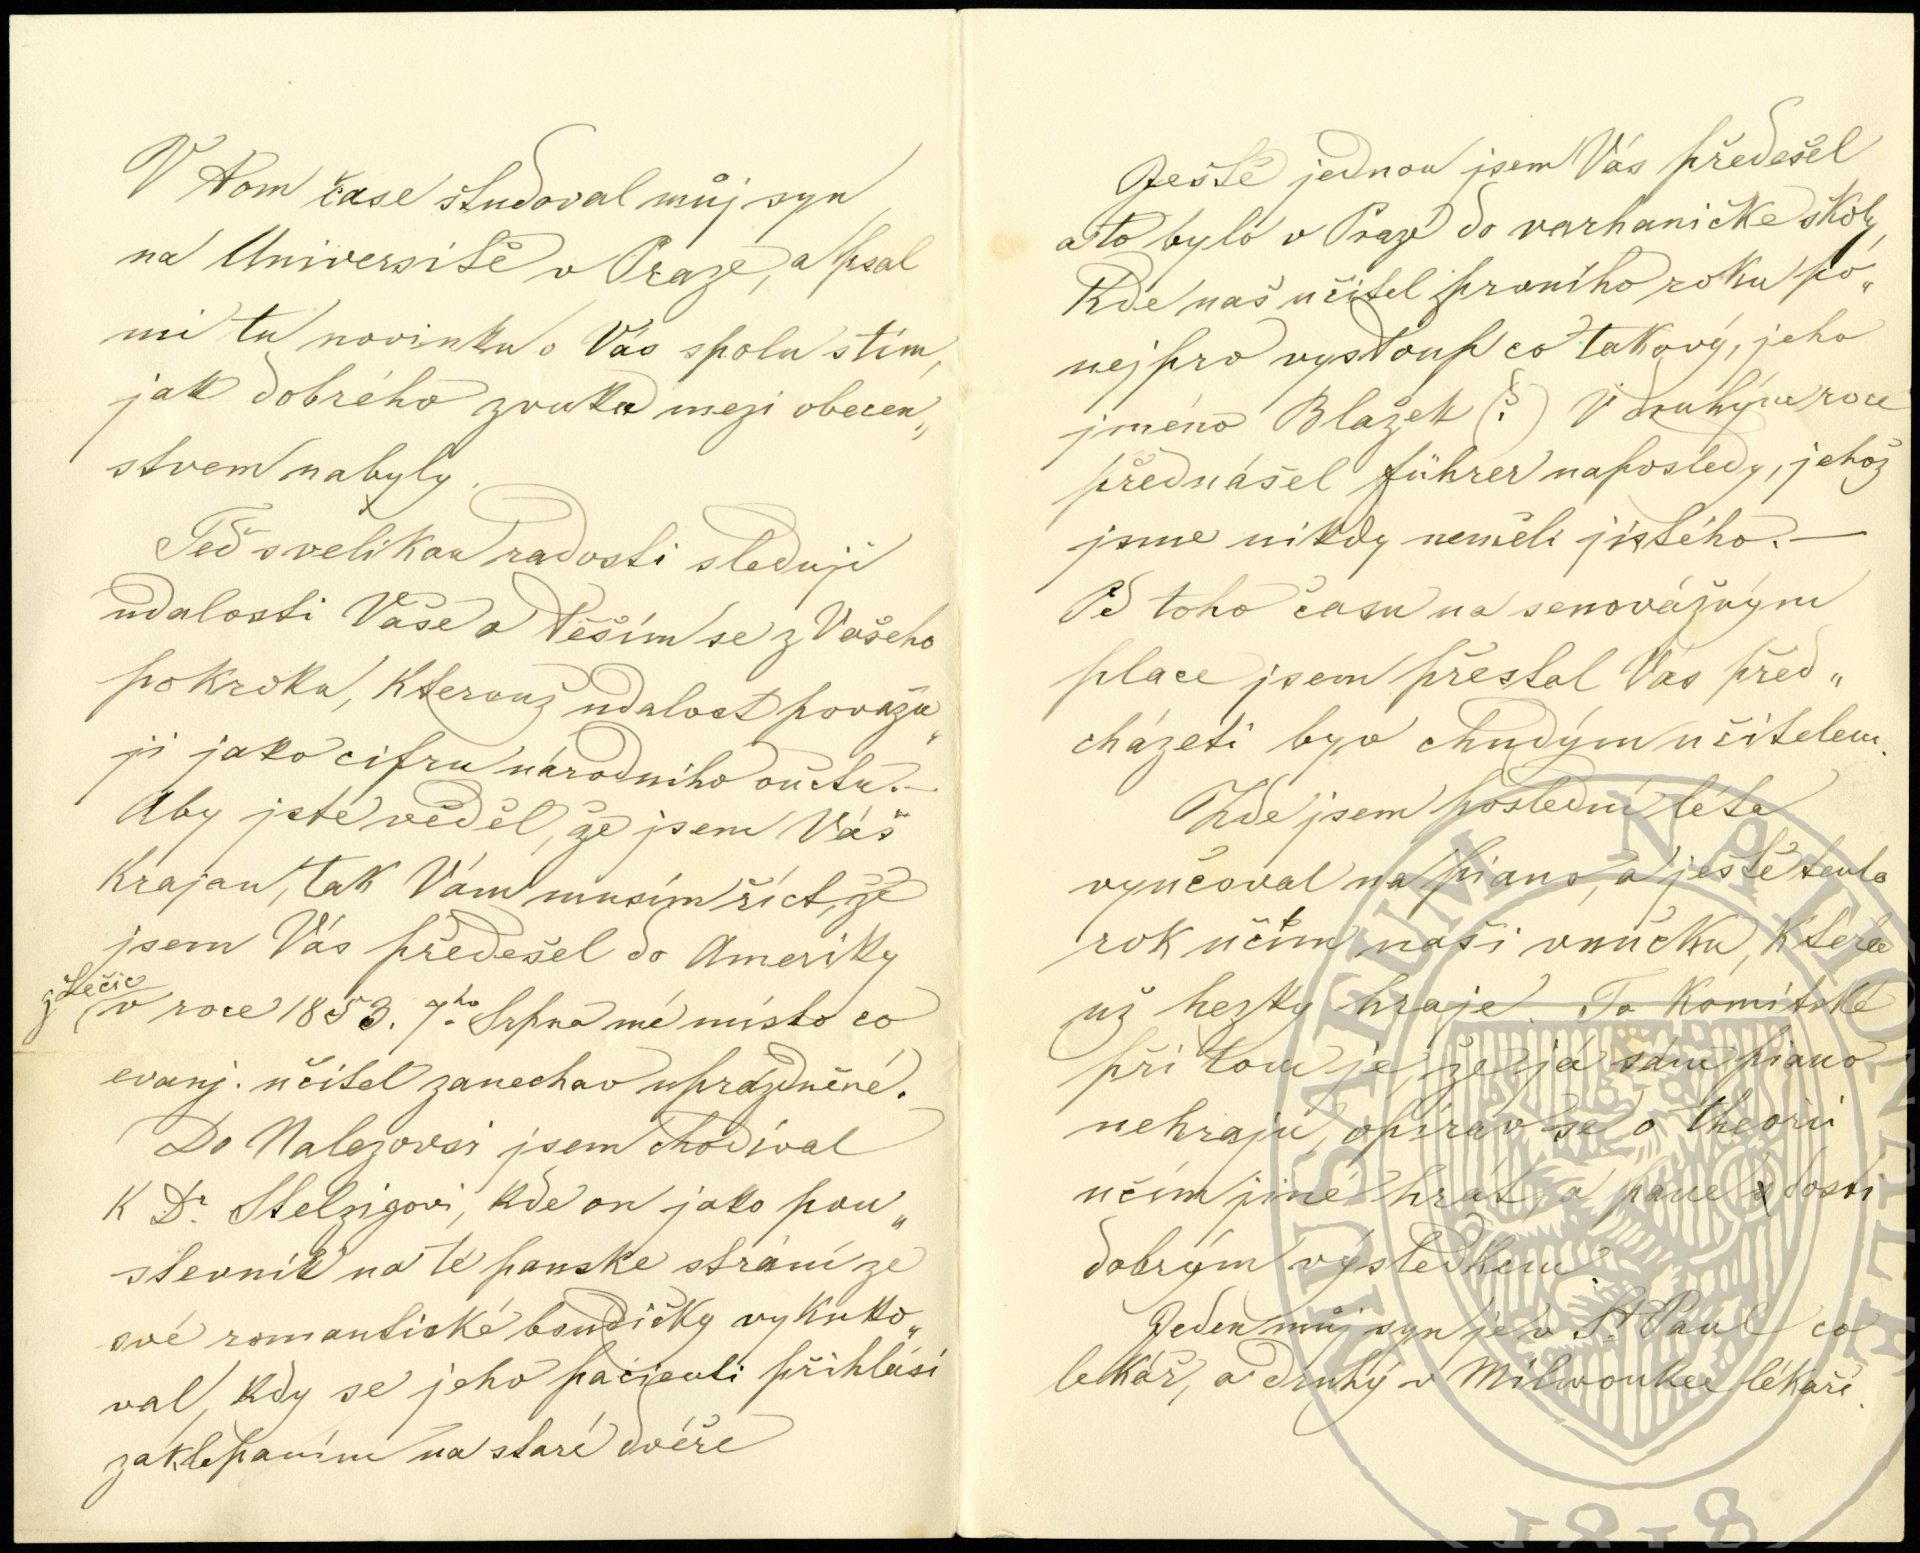 V tom čase študoval můj syn
na Universitě v Praze, a psal
mi tu novinku o Vás spolu s tím,
jak dobrého zvuku mezi obecen„
stvem nabyly.
Teď s velikou radosti sleduji
udalosti Vaše a těším se z Vašeho
pokroku, kterouž udalost považu„
ji jako cifru národního oučtu.—
Aby jste věděl, že jsem Váš
krajan, tak Vám musím říct, že
jsem Vás předešel do Ameriky
z Lečic
v roce 1853. 7ho Srpna mé místo co
evanj. učitel zanechav uprázdněné.
Do Nalezovsi jsem chodíval
k Dr. Stelzigovi, kde on jako pou„
stevník na té panske stráni ze
své romantické boudičky vykuko„
val, kdy se jeho pacienti přihlási
zaklepaním na staré dvéře
Ještě jednou jsem Vás předešel
a to bylo v Praze do varhaničke školy,
kde naš učitel prvního roku po„
nejprv vystoup co takový, jeho
jméno Blažek (?) V druhým roce
přednášel Führer naposledy, jehož
jsme nikdy neměli jistého.—
Od toho času na senovážným
place jsem přestal Vás před„
cházeti byv chudým učitelem.
Zde jsem poslední léta
vyučoval na piano, a ještě tento
rok učím naši vnučku, která
už hezky hraje. To komitské
při tom je, že já sám piano
nehraju, opírav se o theorii
učím jiné hrát, a pane s dosti
dobrým výsledkem.
Jeden můj syn je v St. Paul co
lekář, a druhý v Milwoukee lékaři.
MUSAEUM NATIONALE
1818